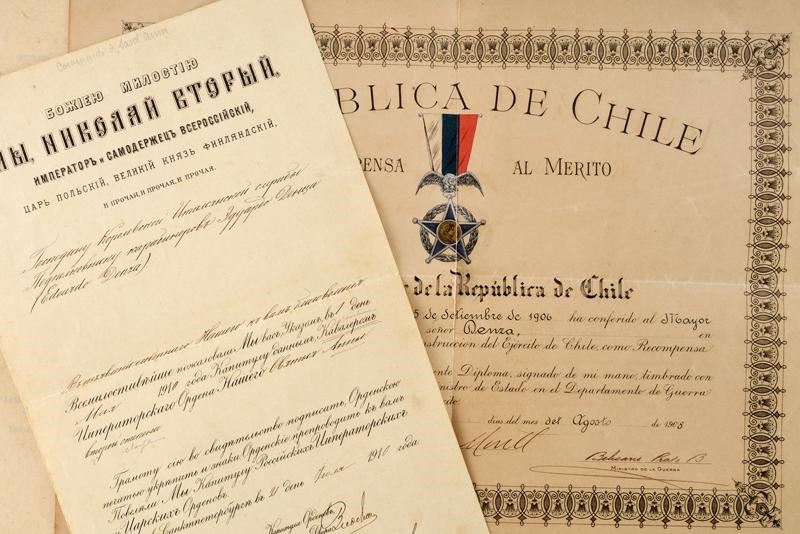 БОЖІЕЮ МИЛОСТІЮ
МЫ, НИКОЛАЙ ВТОРЫЙ,
ИМПЕРАТОРЪ и САМОДЕРЖЕЦЪ ВСЕРОССІЙСКІЙ,
ЦАРЬ ПОЛЬСКІЙ, ВЕЛИКІЙ КНЯЗЬ ФИНЛЯНДСКІЙ,
И ПРОЧАЯ, И ПРОЧАЯ, И ПРОЧАЯ.
Господину Королевской Итальянской службы
Подполковнику карабинеровъ Эдуардо Денца
(Edoardo Denza)
Нашего къ вамъ благоволенія
Всемилостивѣйше пожаловали Мы васъ Указомъ въ 1 день
Мая 1910 года Капитулу даннымъ, Кавалеромъ
Императорскаго Ордена Нашего Святыя Анны
второй степени
Грамоту сію во свидѣтельство подписать, Орденскою
печатью укрѣпить и знаки Орденскіе препроводить къ вамъ
Повелѣли Мы Капитулу Россійскихъ Императорскихъ
и Царскихъ Орденовъ.
Санктпетербургѣ въ 21 день Іюля 1910 года
BLICA DE CHILE
PENSA AL MERITO
de la República de Chile
5 de Setiembre de 1906 ha conferido al Mayor
señor Denza, en
strucción del Ejército de Chile, como Recompensa
ente Diploma, signado de mi mano, timbrado con
nistro de Estado en el Departamento de Guerra
días del mes del Agosto de 1908
Montt
MINISTRO DE LA GUERRA